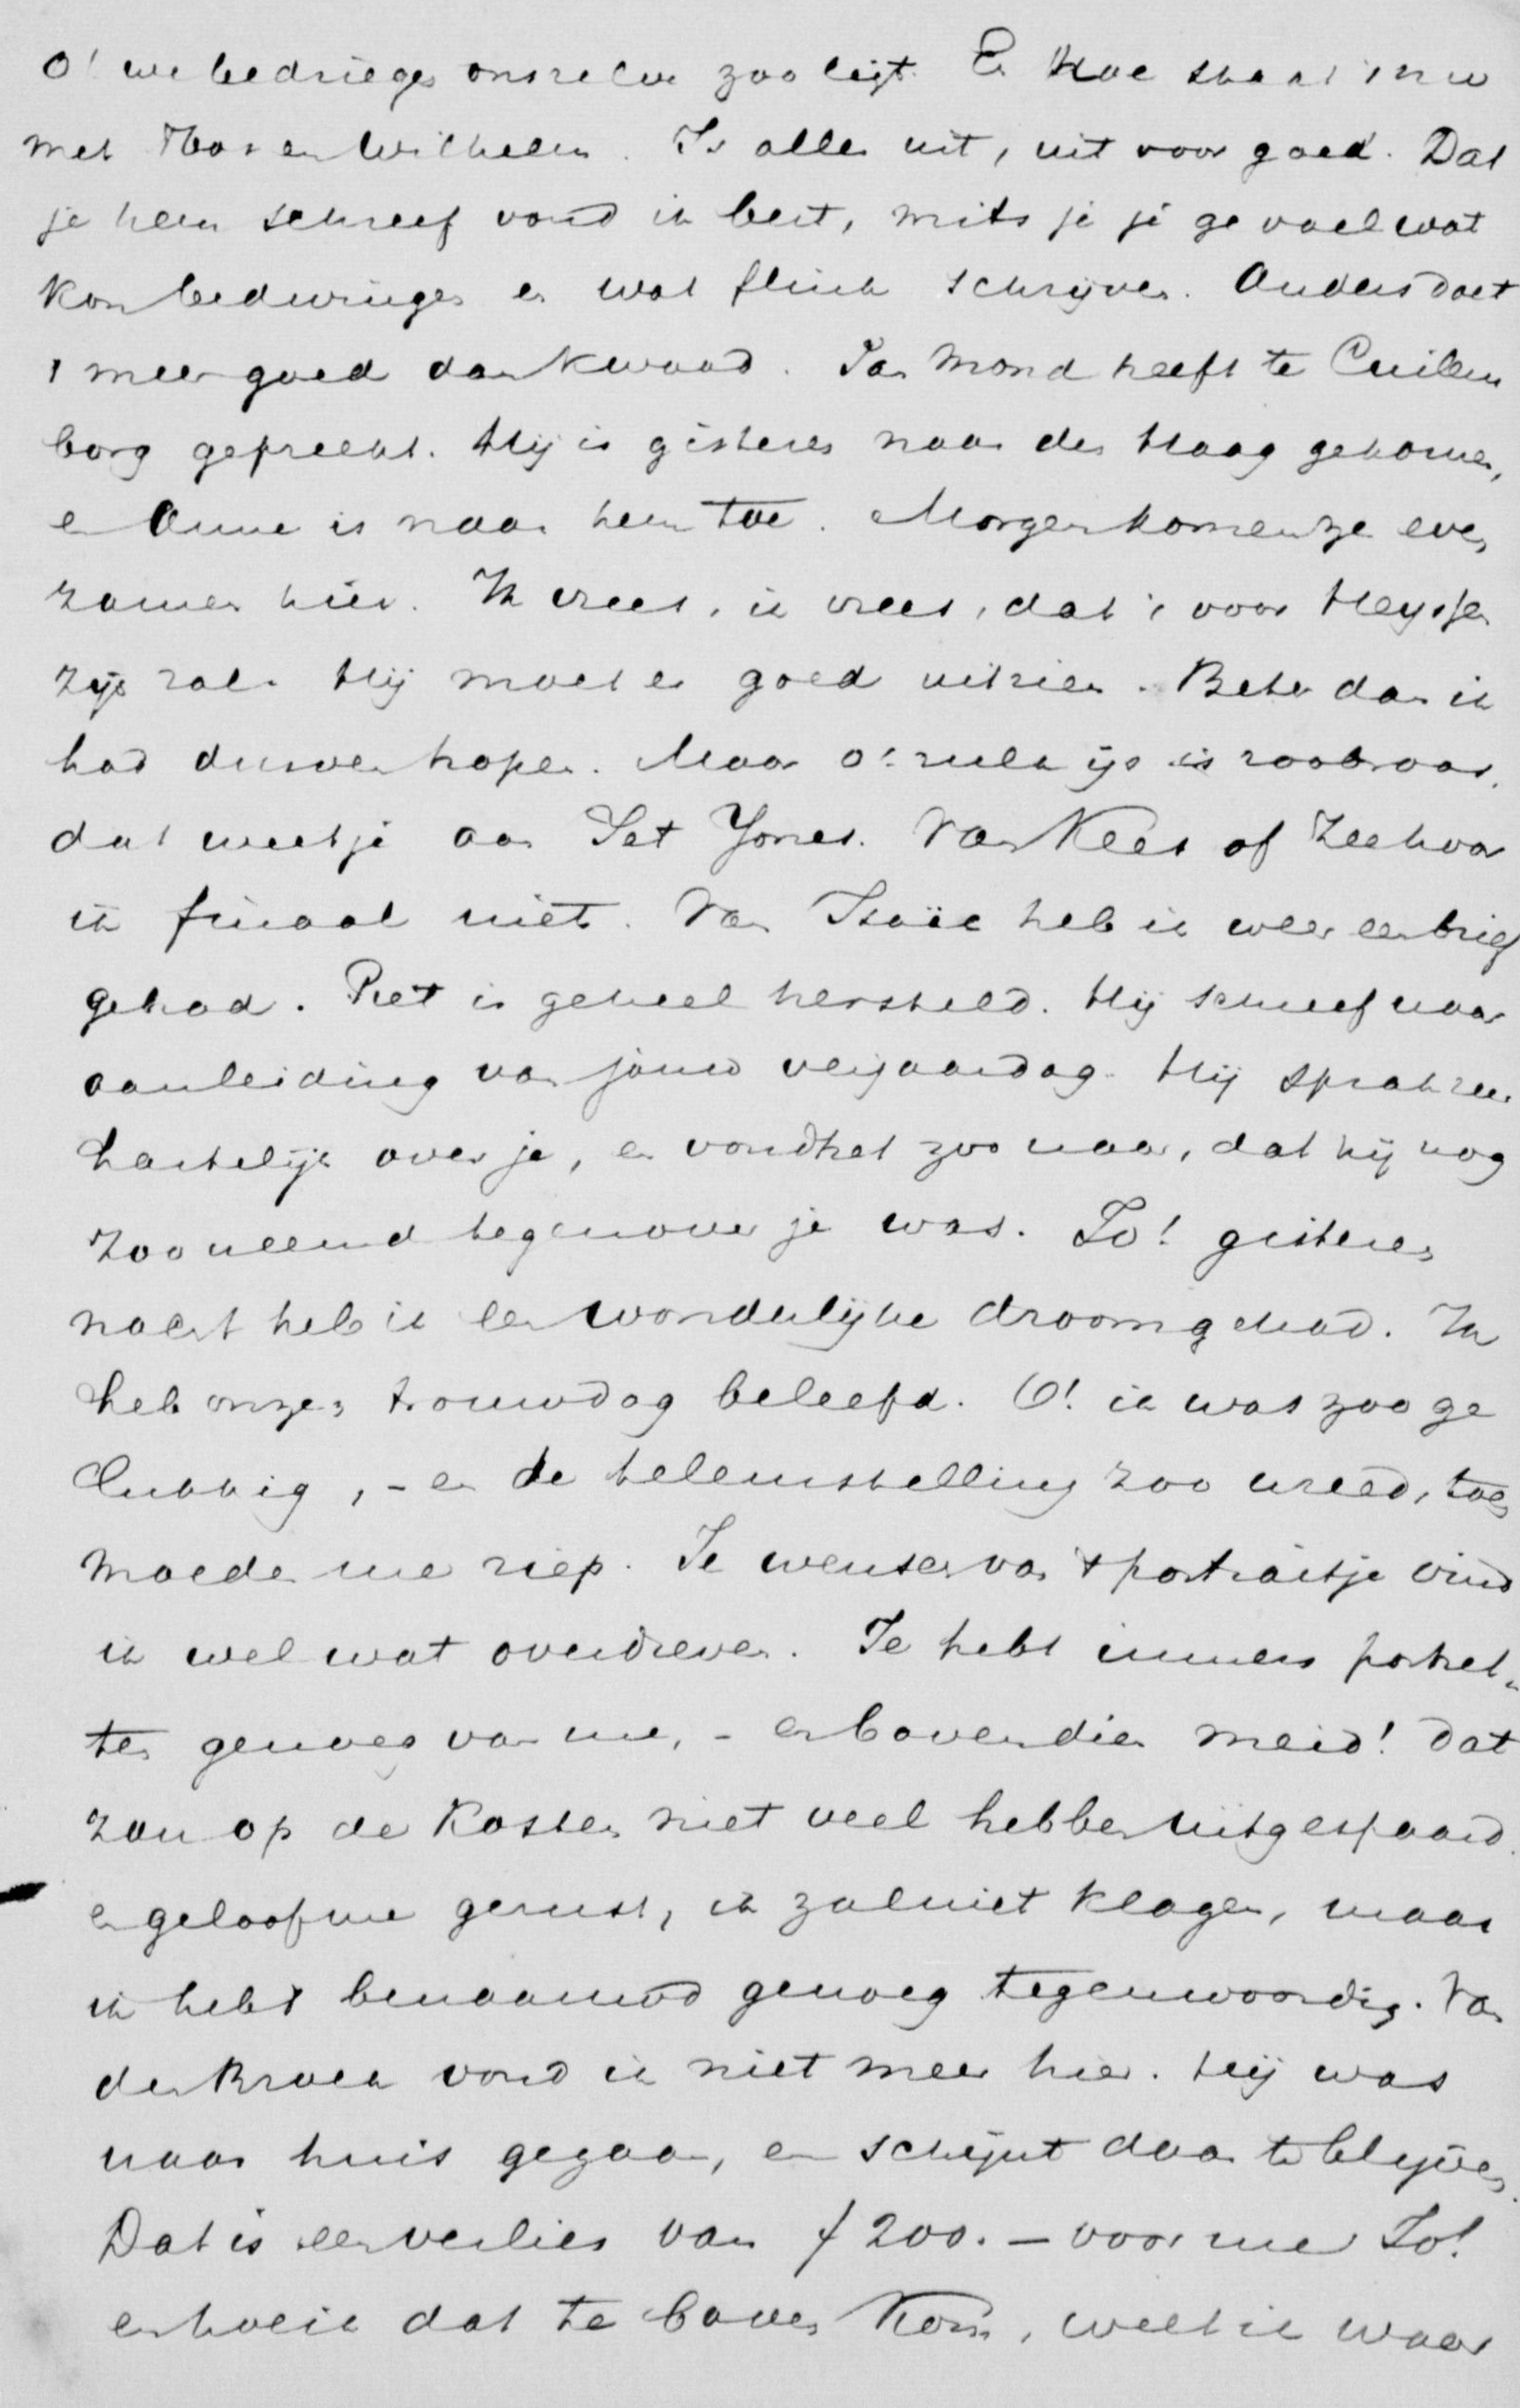 O! we bedriegen onszelve zoo ligt. En hoe staat 't nu
met Mos en Wilhelm. Is alles uit, uit voor goed. Dat
je hem schreef vond ik best, mits je je gevoel wat
kon bedwingen en wat flink schrijven. Anders doet
't meer goed dan kwaad. Jan Mond heeft te Cuilen
borg gepreekt. Hij is gisteren naar den Haag gekomen,
en Anne is naar hem toe. Morgen komen ze even
zamen hier. Ik vrees, ik vrees, dat 't voor Heyssen
zijn zal. Hij moet er goed uitzien. Beter dan ik
had durven hopen. Maar o! zulk ijs is zoo broos,
dat weet je aan Jet Jones. Van Kees of Zee hoor
ik finaal niet. Van Isaïe heb ik weer een brief
gehad. Piet is geheel hersteld. Hij schreef naar
aanleiding van jouw verjaardag. Hij sprak zeer
hartelijk over je, en vond het zoo naar, dat hij nog
zoo vreemd tegenover je was. Jo! gisteren
nacht heb ik een wonderlijke droom gehad. Ik
heb onzen trouwdag beleefd. O! ik was zoo ge
lukkig, - en de teleurstelling zoo wreed, toen
moeder me riep. Je wensch van 't portraitje vind
ik wel wat overdreven. Je hebt immers portret-
ten genoeg van me, - en bovendien meid! dat
zou op de kosten niet veel hebben uitgespaard.
en geloof me gerust, ik zal niet klagen, maar
ik heb 't benaauwd genoeg tegenwoordig. Van
den Broek vond ik niet meer hier. Hij was
naar huis gegaan, en schijnt daar te blijven.
Dat is een verlies van f 200. - voor me Jo!
en hoe ik dat te boven kom, weet ik waar